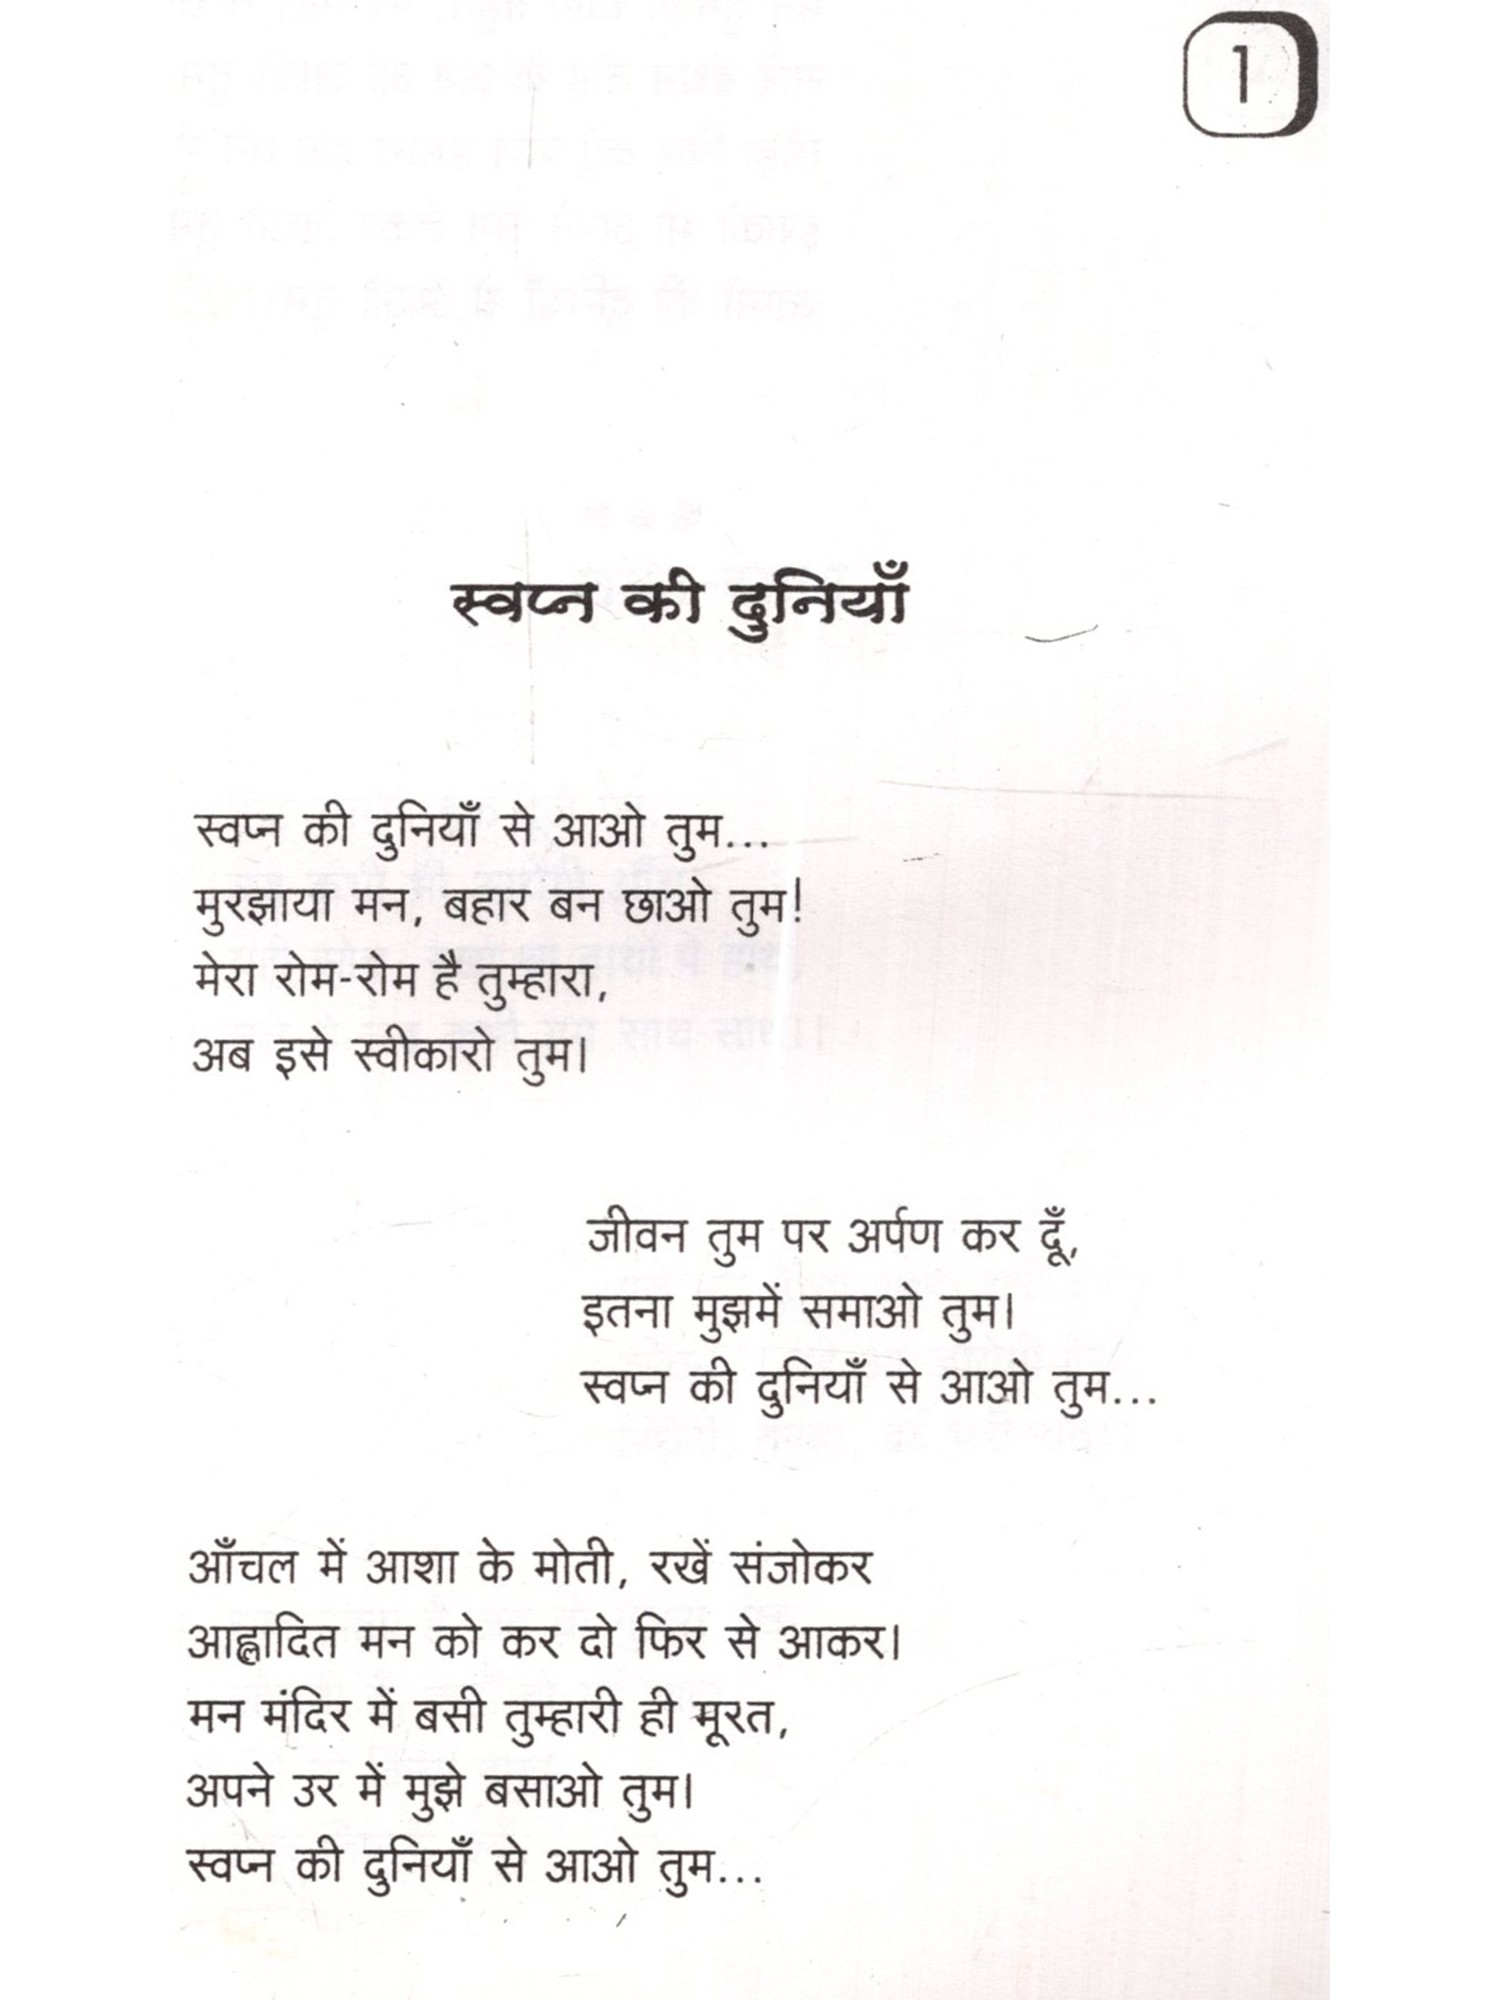 1
स्वप्न की दुनियाँ
स्वप्न की दुनियाँ से आओ तुम...
मुरझाया मन, बहार बन छाओ तुम!
मेरा रोम-रोम है तुम्हारा,
अब इसे स्वीकारो तुम।
जीवन तुम पर अर्पण कर दूँ,
इतना मुझमें समाओ तुम।
स्वप्न की दुनियाँ से आओ तुम...
आँचल में आशा के मोती, रखें संजोकर
आह्लादित मन को कर दो फिर से आकर।
मन मंदिर में बसी तुम्हारी ही मूरत,
अपने उर में मुझे बसाओ तुम।
स्वप्न की दुनियाँ से आओ तुम...